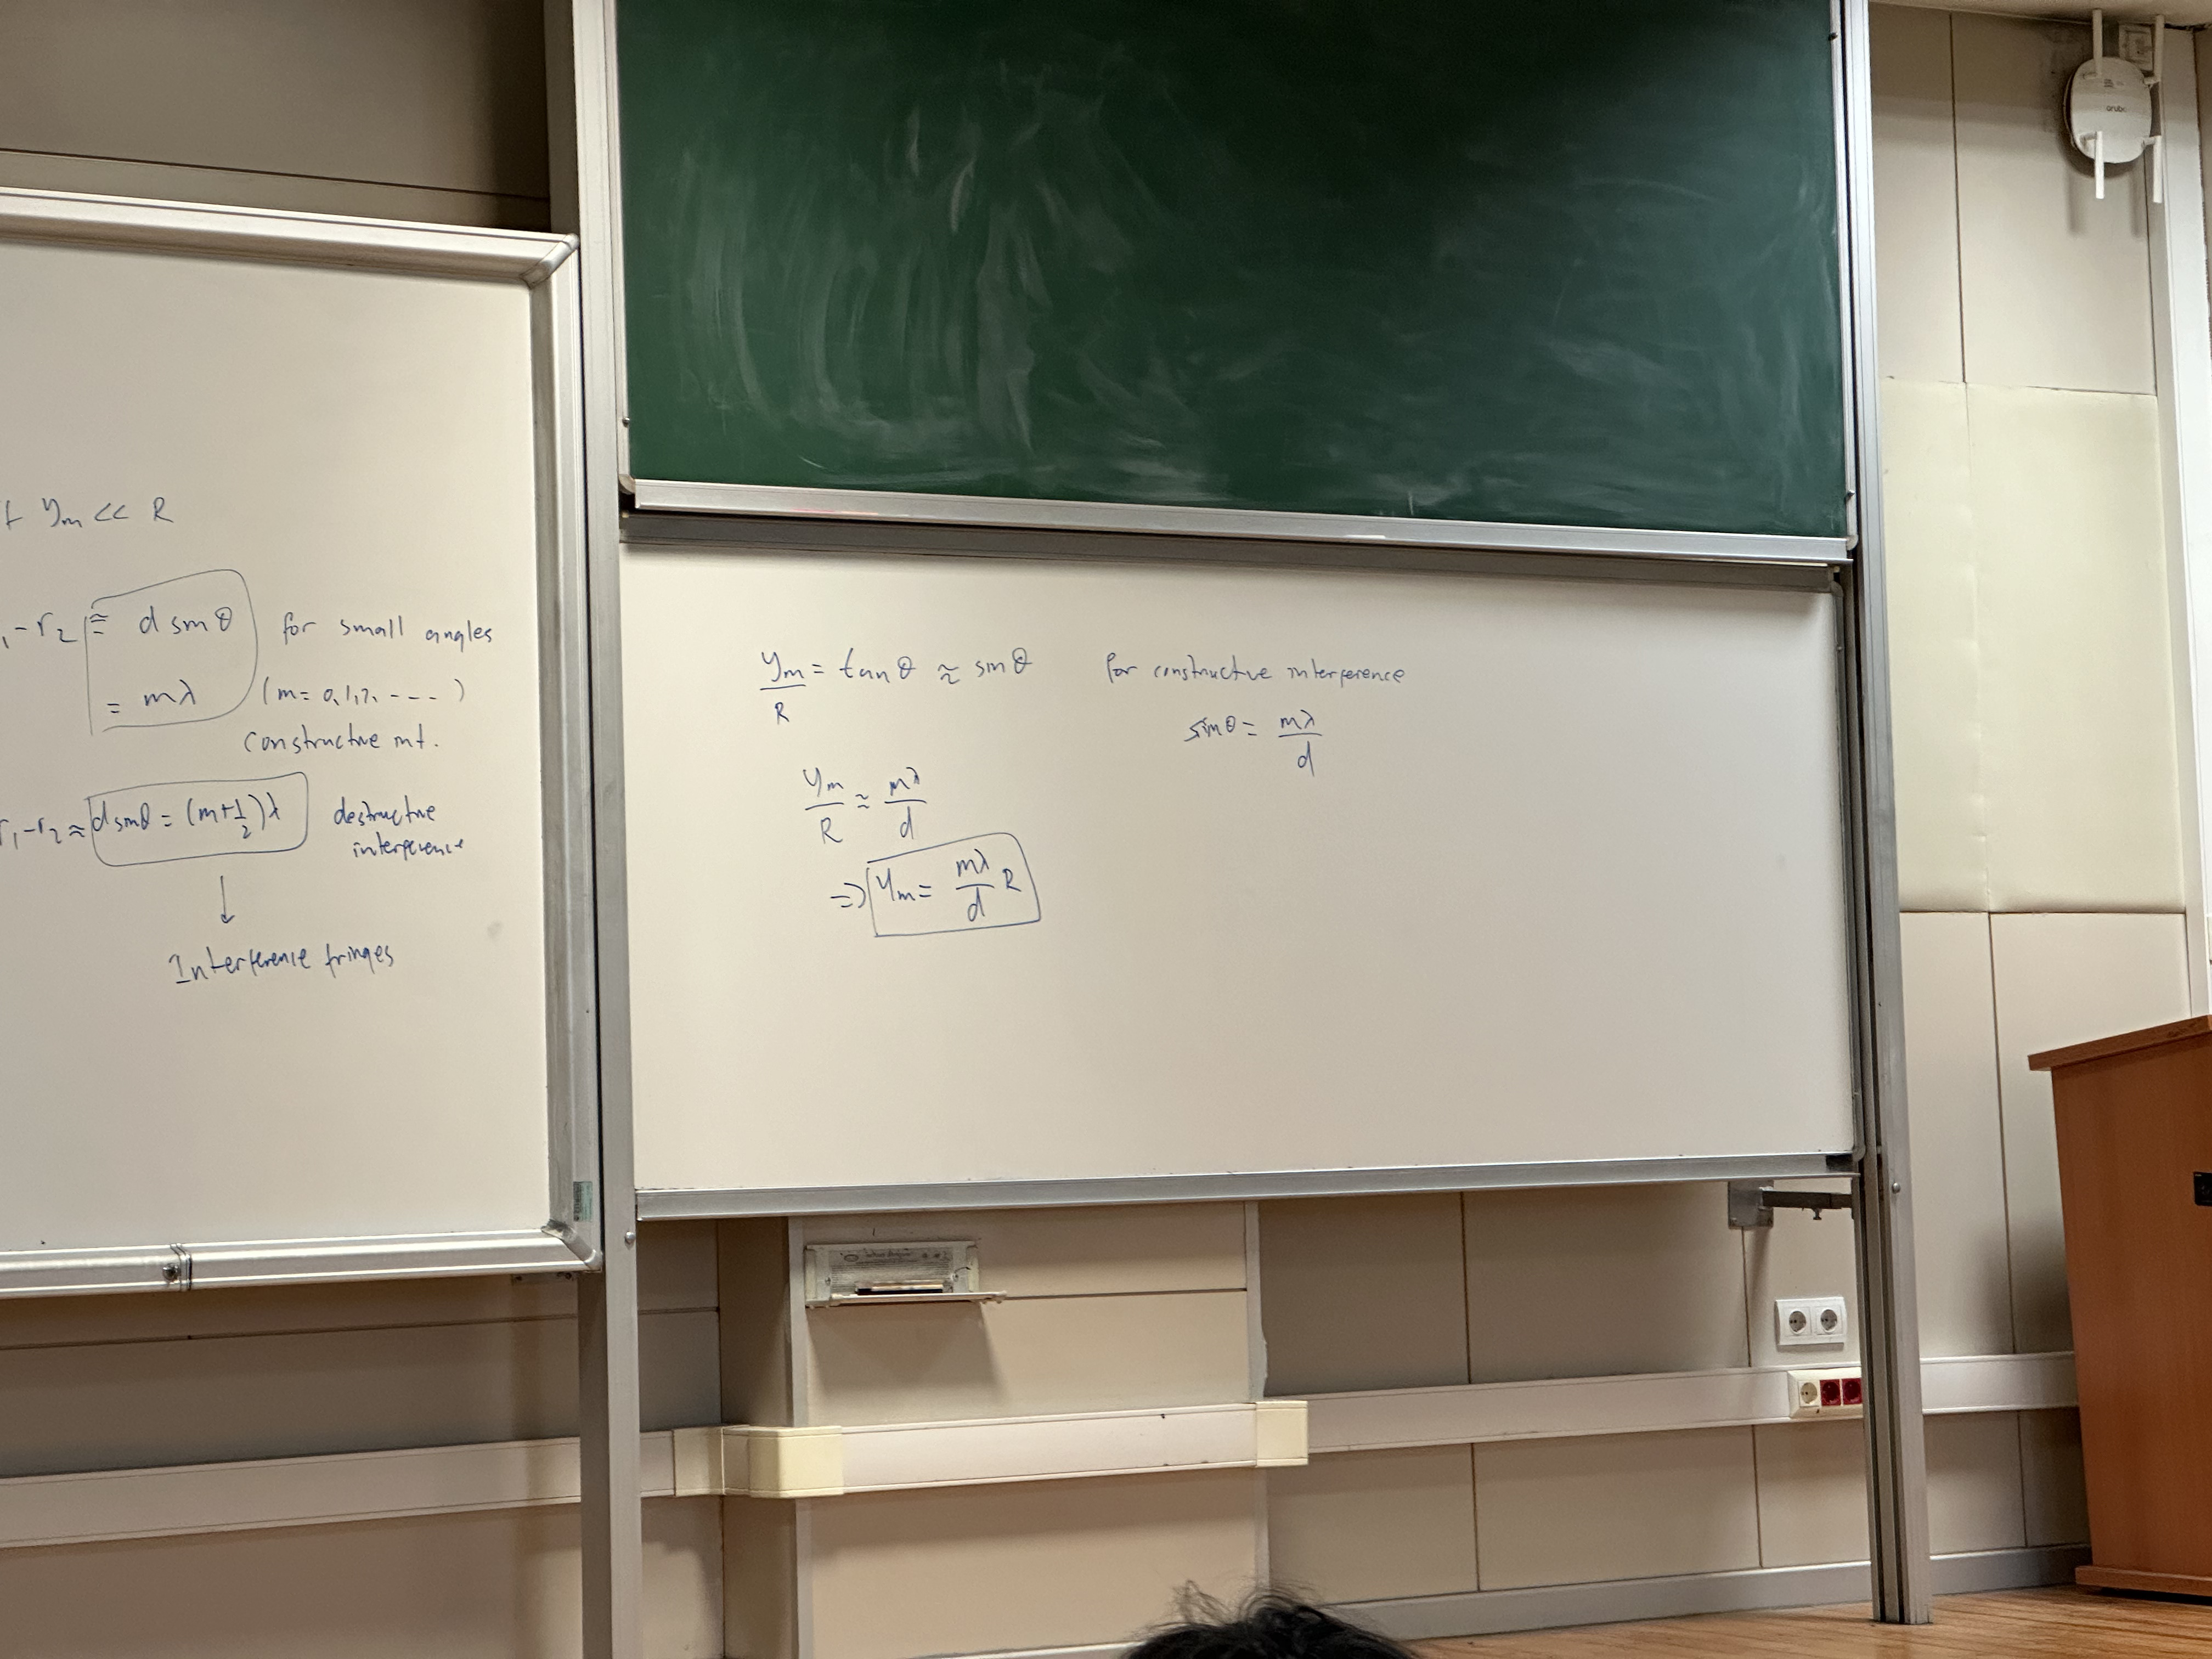 yₘ << R
r₂ ≅ d sinθ for small angles
= mλ (m = 0, 1, 2, ----)
Constructive int.
r₁ - r₂ ≈ d sinθ = (m + 1/2)λ destructive
interference
↓
Interference fringes
yₘ/R = tanθ ≈ sinθ for constructive interference
sinθ = mλ/d
yₘ/R ≈ mλ/d
⇒ yₘ = mλ/d R
aruba